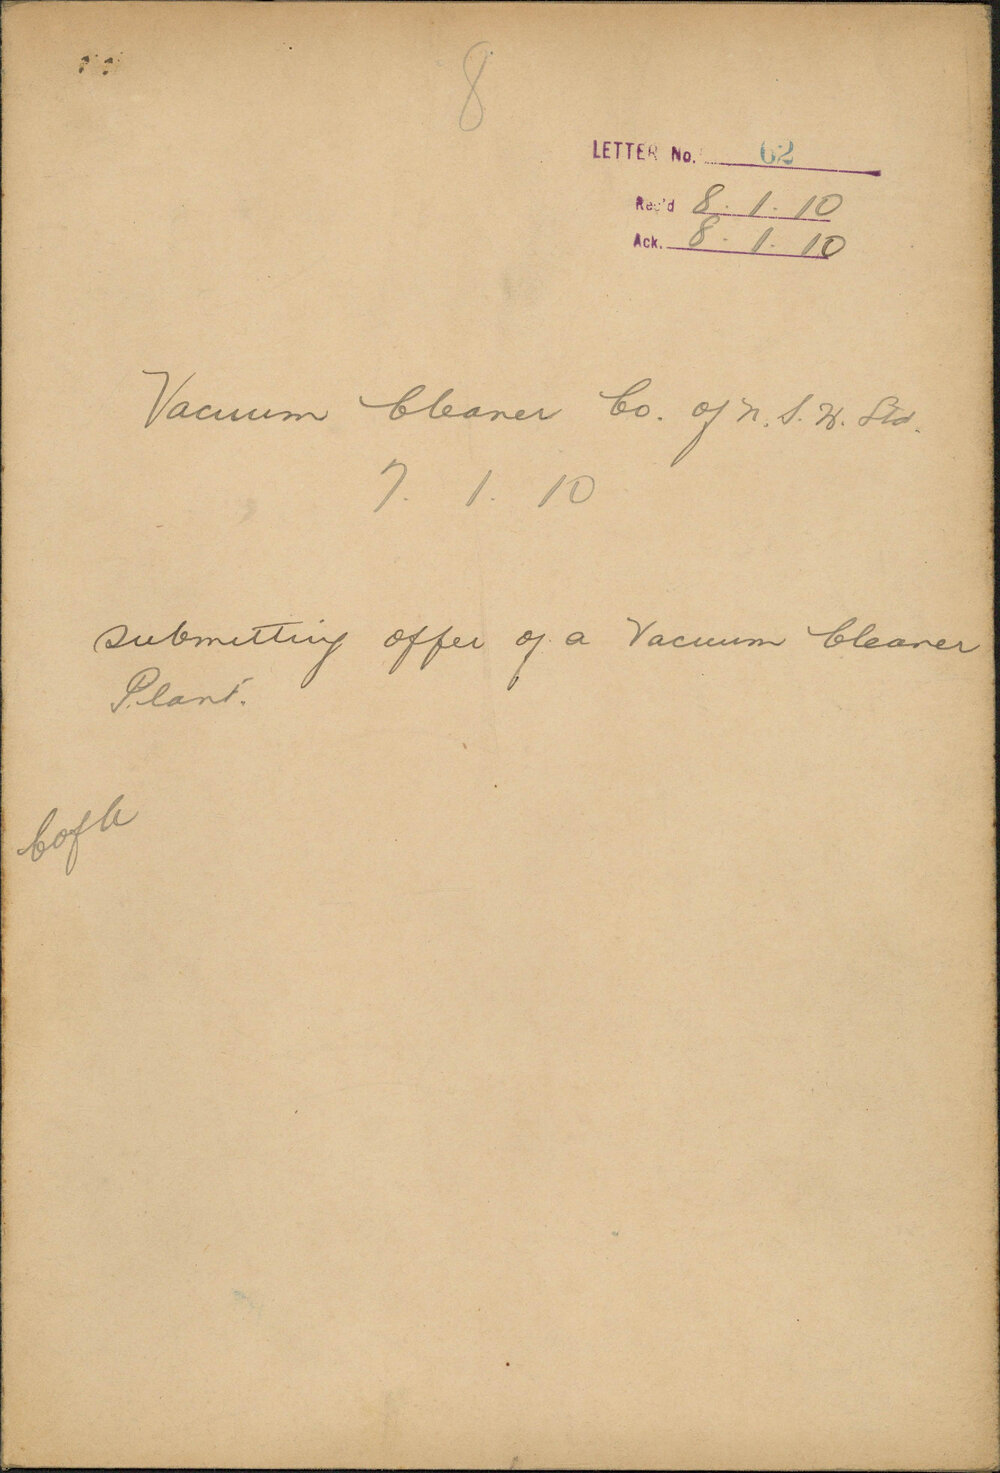 8
LETTER No. 62
Rec'd 8.1.10
Ack. 8.1.10
Vacuum Cleaner Co. of N.S.W. Ltd.
7.1.10
submitting offer of a Vacuum Cleaner
Plant.
C of A